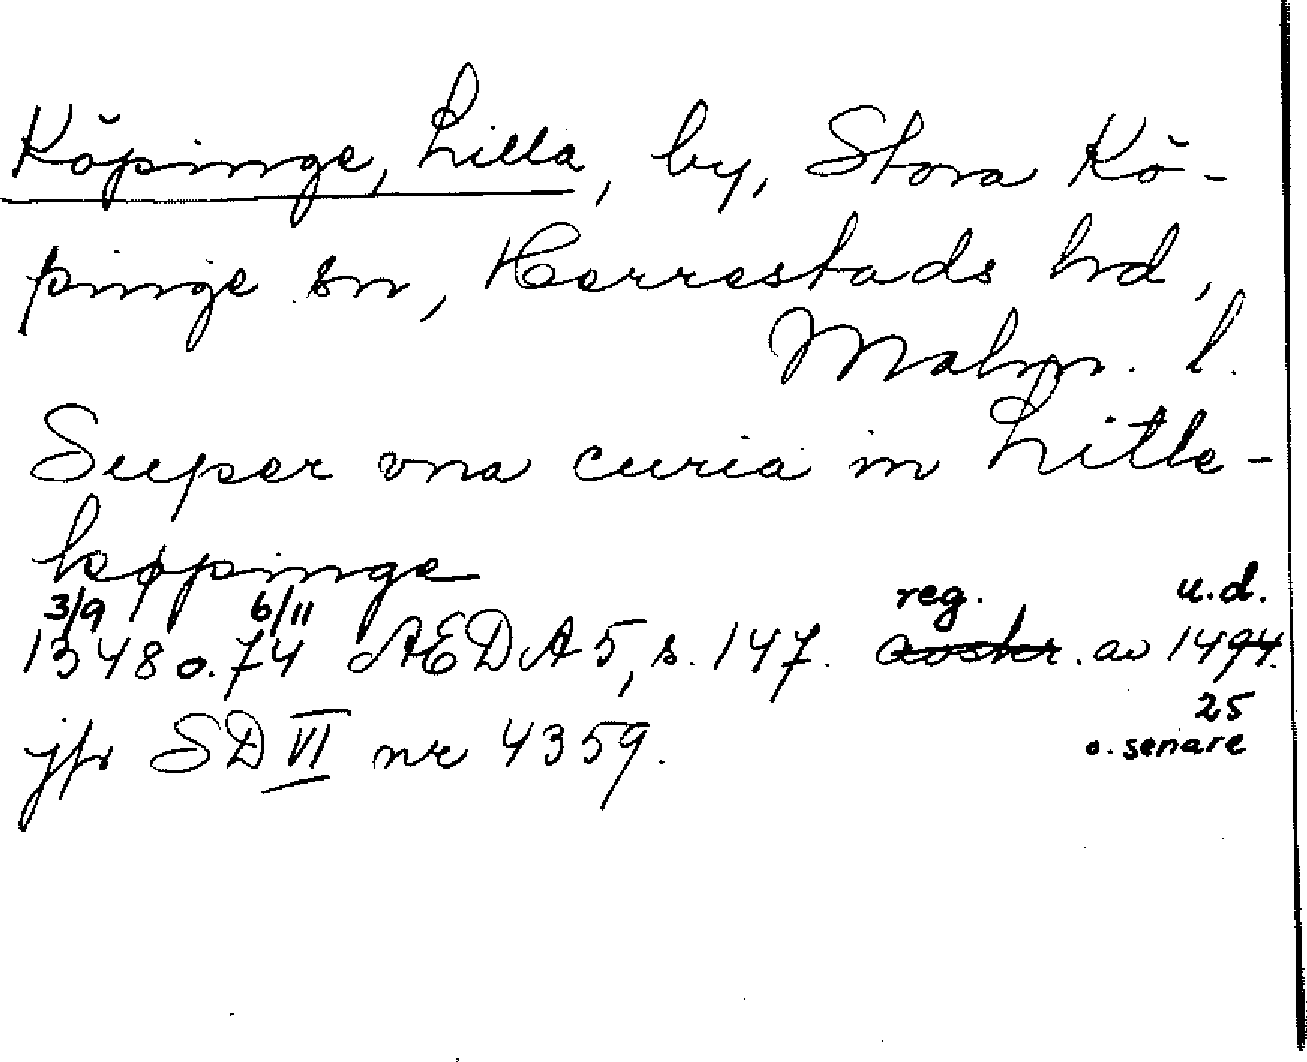 Köpinge, Lilla, by, Stora Kö-
pinge sn, Herrestads hd,
Malm. l.
Super vna curia in Litle-
køpinge
3/9 6/11 reg. u.d.
1348 o. 74 AEDA 5, s. 147. avskr. av 1494.
25
jfr SD VI nr 4359. o. senare